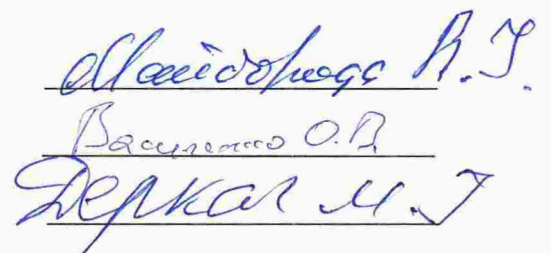 Майборода В.Г.
Василенко О.В.
Деркач М.Г